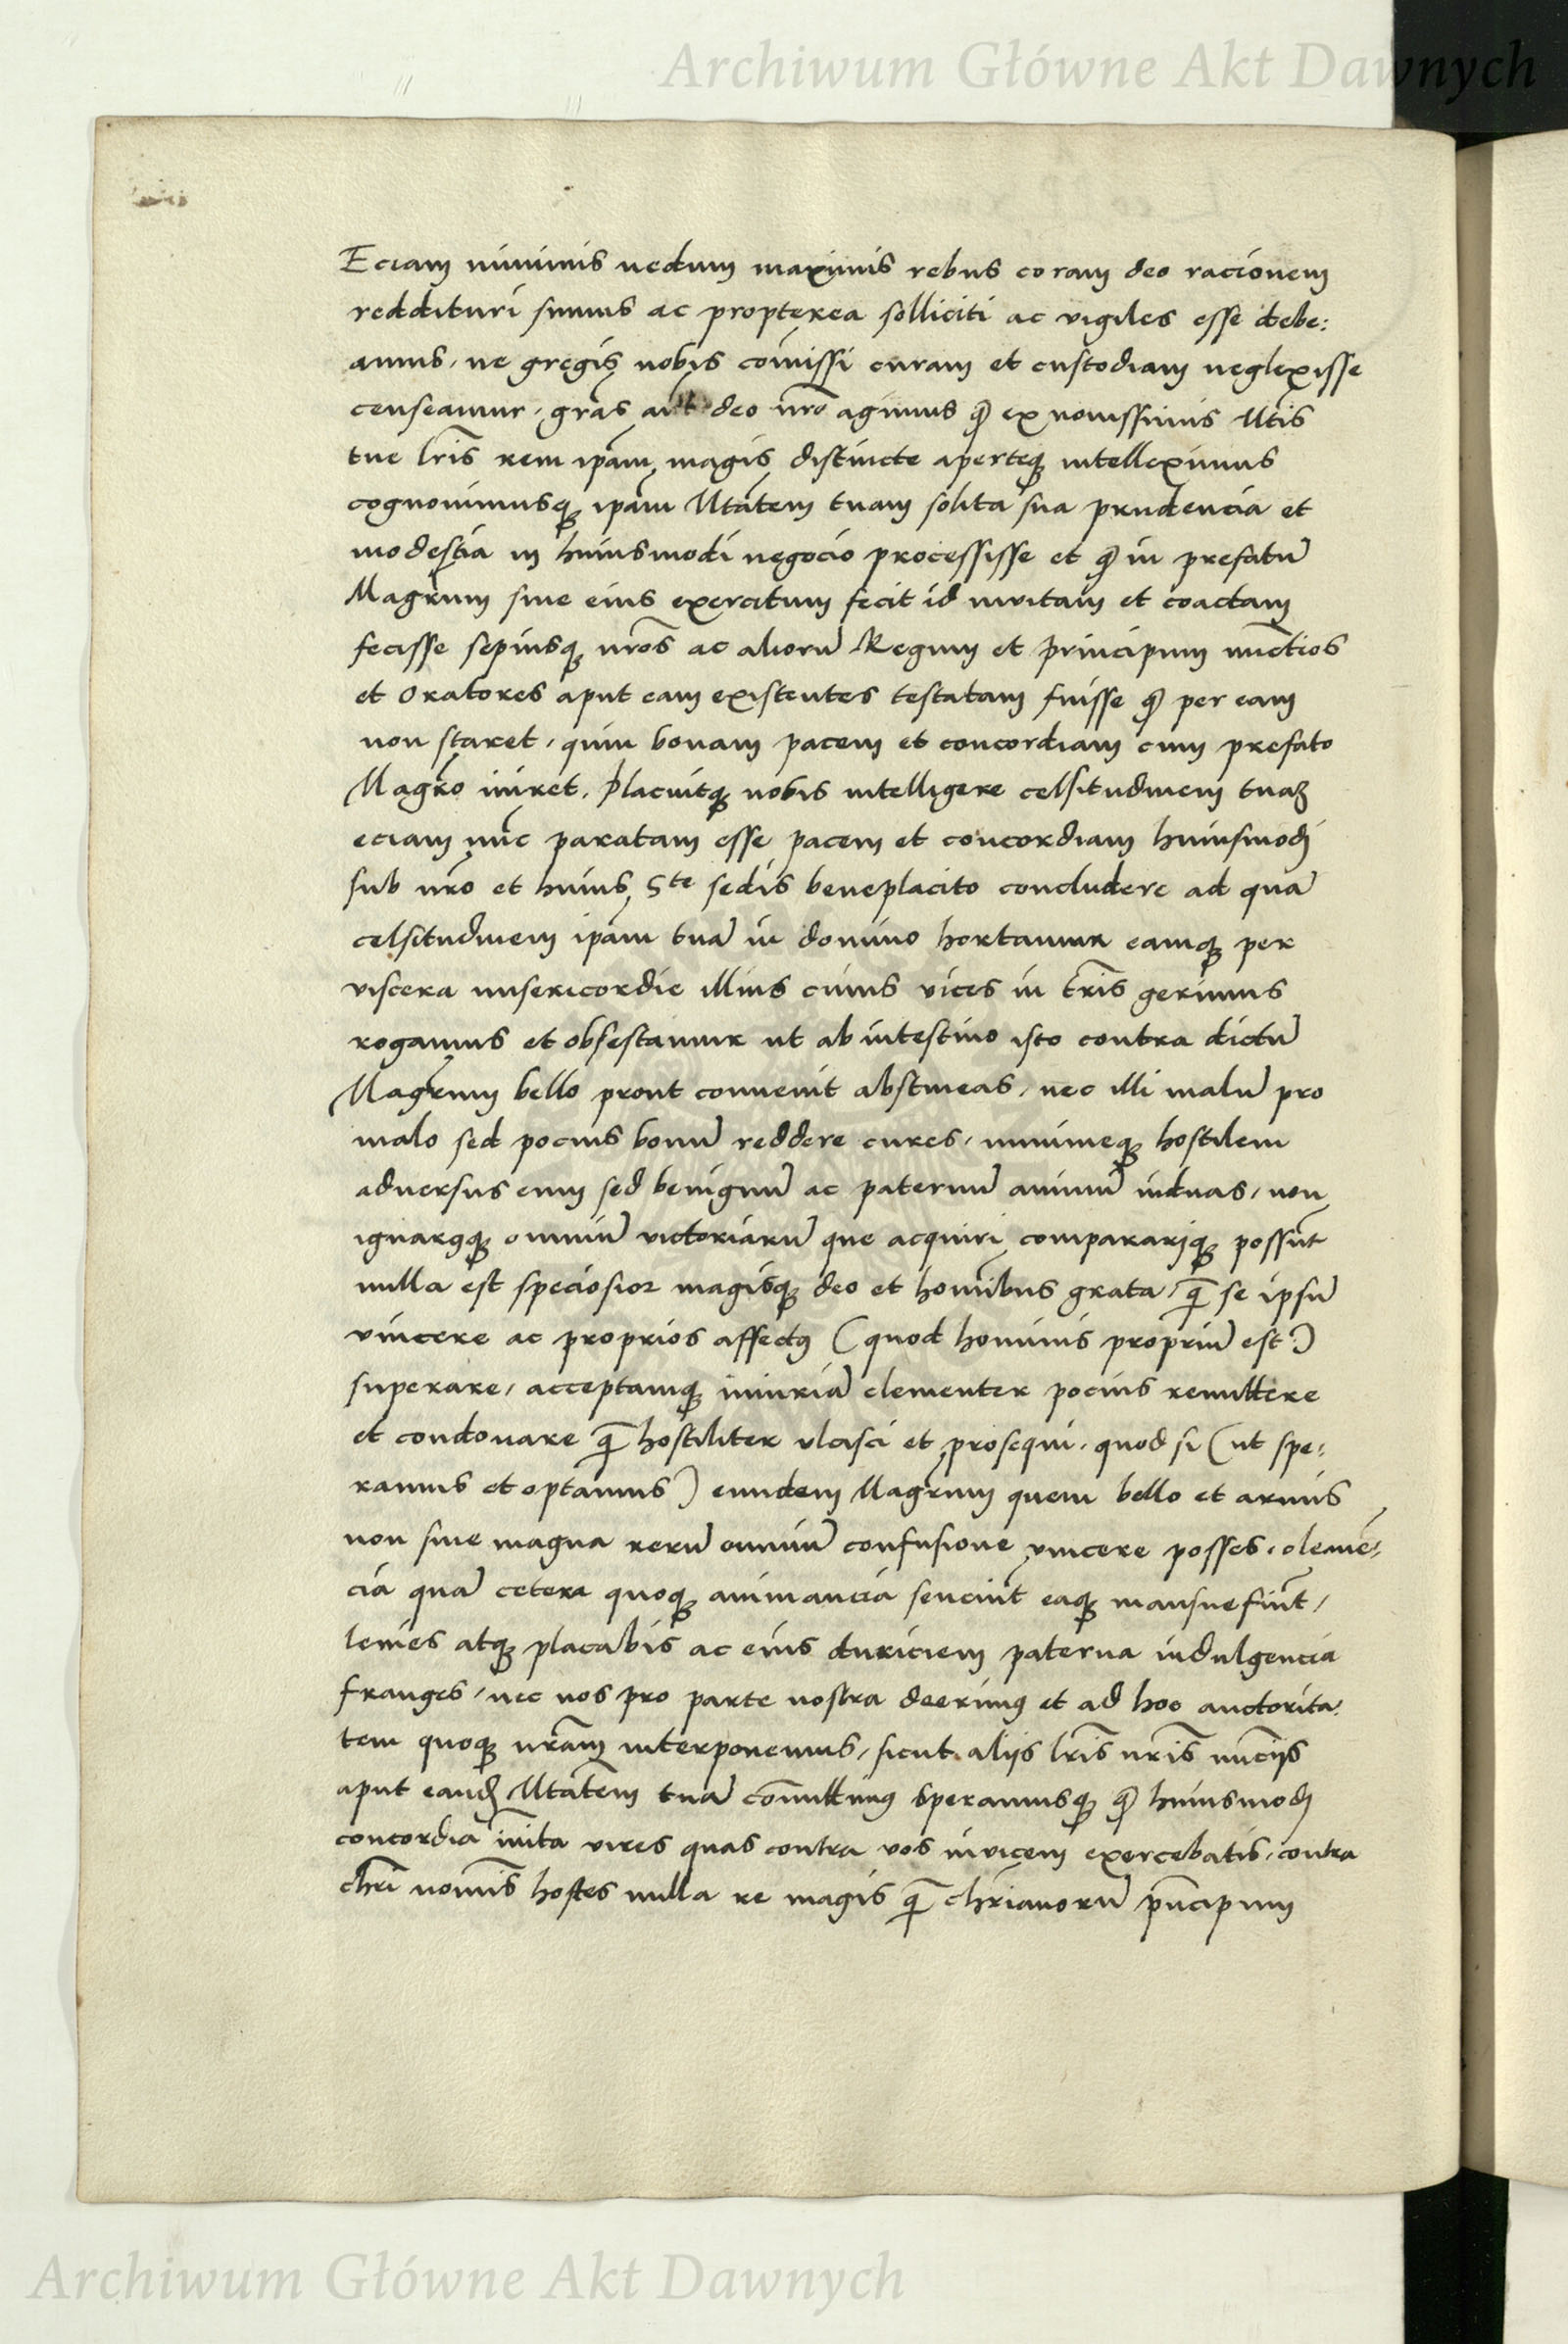 Archiwum Główne Akt Dawnych
Eciam minimis nedum maximis rebus coram deo racionem
reddituri sumus ac propterea solliciti ac vigiles esse debe:
amus, ne gregis nobis comissi curam et custodiam neglexisse
censeamur, gras aut deo nro agimus qd ex novissimis Mtis
tue lris rem ipam magis distincte aperteq intelleximus
cognovimusq ipam Mtatem tuam solita sua prudencia et
modestia in huiusmodi negocio processisse et qd in prefatu
Magrum sive eius exercitum fecit id invitam et coactam
fecisse sepiusq nros ac alioru Regum et principum nuctios
et Oratores aput eam existentes testatam fuisse qd per eam
non staret, quin bonam pacem et concordiam cum prefato
Magro iniret. Placuitq nobis intelligere celsitudinem tuaz
eciam nuc paratam esse pacem et concordiam huiusmodi
sub nro et huius Ste sedis beneplacito concludere ad qua
celsitudinem ipam tua in domino hortamur eamq per
viscera misericordie illius cuius vices in tris gerimus
rogamus et obtestamur ut ab intestino isto contra dictu
Magrum bello prout convenit abstineas, nec illi malu pro
malo sed pocius bonu reddere cures, minimeq hostilem
adversus eum sed benignu ac paternu animu induas, non
ignarusq omniu victoriaru que acquiri comparariq possunt
nulla est speciosior magisq deo et homibus grata, qm se ipsu
vincere ac proprios affectus (quod hominis propriu est)
superare, acceptamq iniuria clementer pocius remittere
et condonare qm hostiliter ulcisci et prosequi, quod si (ut spe:
ramus et optamus) eundem Magrum quem bello et armis
non sine magna reru omniu confusione vincere posses, cleme:
cia qua cetera quoq animancia senciut eaq mansuefiunt,
lenies atq placabis ac eius duriciem paterna indulgencia
franges, nec nos pro parte nostra deerimus et ad hoc auctorita:
tem quoq nram interponemus, sicut aliis lris nris nuciis
aput eand Mtatem tua comittimus speramusq qd huiusmodi
concordia inita vires quas contra vos invicem exercebatis, contra
chri nomis hostes nulla re magis qm chrianoru pncipum
Archiwum Główne Akt Dawnych